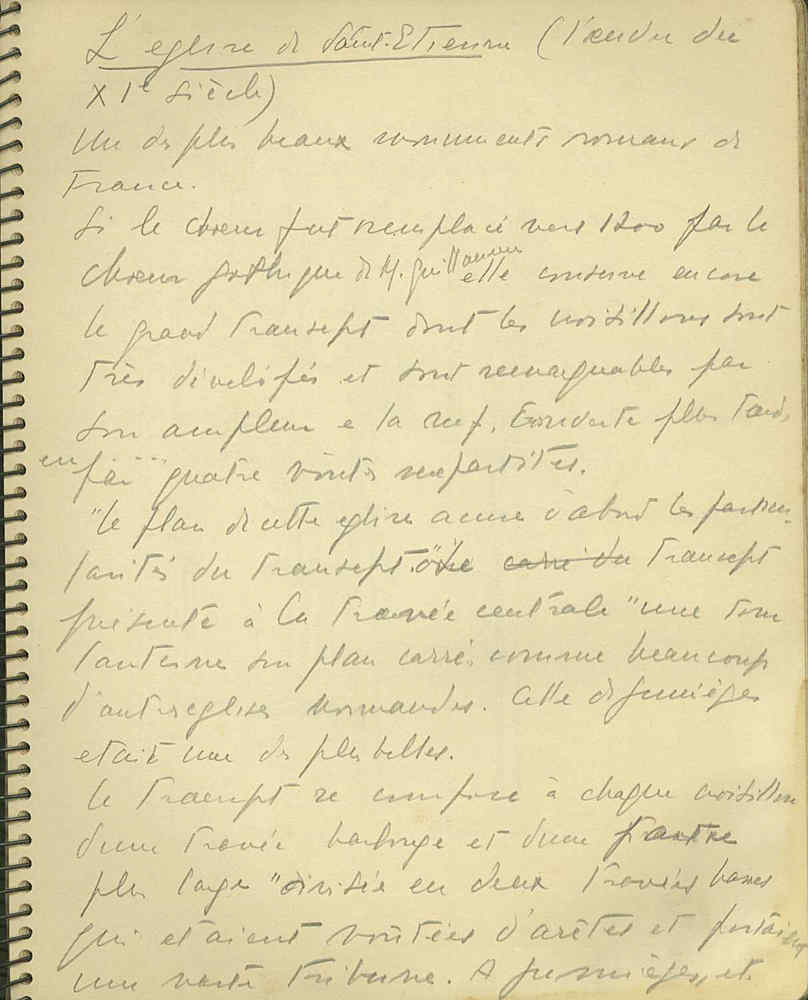 L'eglise de Saint-Etienne (l'œuvre du
XIe siècle)
Un des plus beaux monuments romans de
France.
Si le chœur fut remplacé vers 1200 par le
chœur gothique de M. Guillaume elle conserve encore
le grand transept dont les croisillons sont
très dévelopés et sont remarquables par
son ampleur e la nef, couverte plus tard,
en par quatre voûtes sexpartites.
"le plan de cette eglise accuse d'abord les particu-
larités du transept." Le carré du transept
présente à la travée centrale "une tour
lanterne sur plan carré, comme beaucoup
d'autres eglises normandes. Celle de Jumièges
etait une des plus belles.
le transept se compose à chaque croisillon
d'une travée barlongue et d'une
plus large "divisée en deux travées basses
qui etaient voûtées d'arêtes et portaient
une vaste tribune. A Jumièges, et